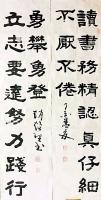 讀書務精認真仔細
不厭不倦
勇攀勇登
立志要達努力踐行